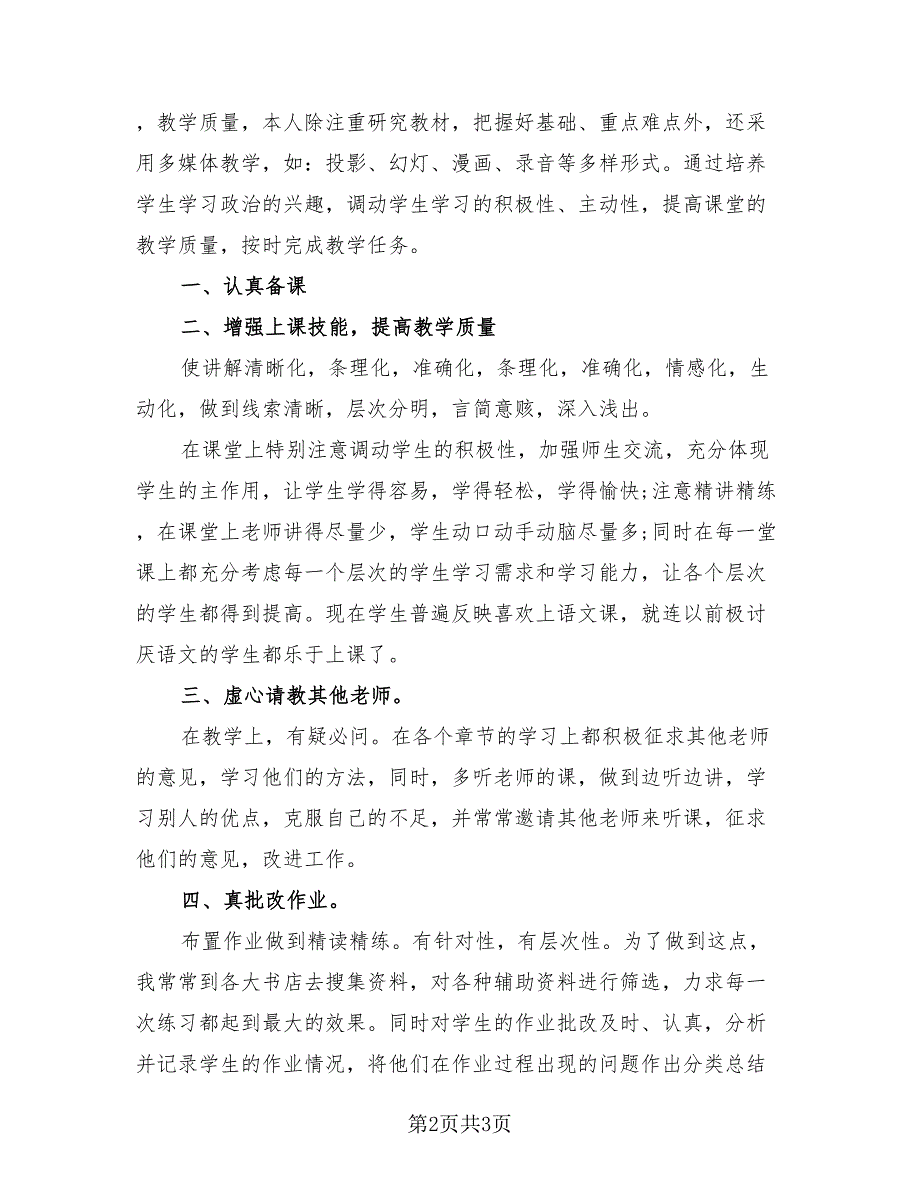 ，教学质量，本人除注重研究教材，把握好基础、重点难点外，还采
用多媒体教学，如：投影、幻灯、漫画、录音等多样形式。通过培养
学生学习政治的兴趣，调动学生学习的积极性、主动性，提高课堂的
教学质量，按时完成教学任务。
一、认真备课
二、增强上课技能，提高教学质量
使讲解清晰化，条理化，准确化，条理化，准确化，情感化，生
动化，做到线索清晰，层次分明，言简意赅，深入浅出。
在课堂上特别注意调动学生的积极性，加强师生交流，充分体现
学生的主作用，让学生学得容易，学得轻松，学得愉快;注意精讲精练
，在课堂上老师讲得尽量少，学生动口动手动脑尽量多;同时在每一堂
课上都充分考虑每一个层次的学生学习需求和学习能力，让各个层次
的学生都得到提高。现在学生普遍反映喜欢上语文课，就连以前极讨
厌语文的学生都乐于上课了。
三、虚心请教其他老师。
在教学上，有疑必问。在各个章节的学习上都积极征求其他老师
的意见，学习他们的方法，同时，多听老师的课，做到边听边讲，学
习别人的优点，克服自己的不足，并常常邀请其他老师来听课，征求
他们的意见，改进工作。
四、真批改作业。
布置作业做到精读精练。有针对性，有层次性。为了做到这点，
我常常到各大书店去搜集资料，对各种辅助资料进行筛选，力求每一
次练习都起到最大的效果。同时对学生的作业批改及时、认真，分析
并记录学生的作业情况，将他们在作业过程出现的问题作出分类总结
第2页共3页